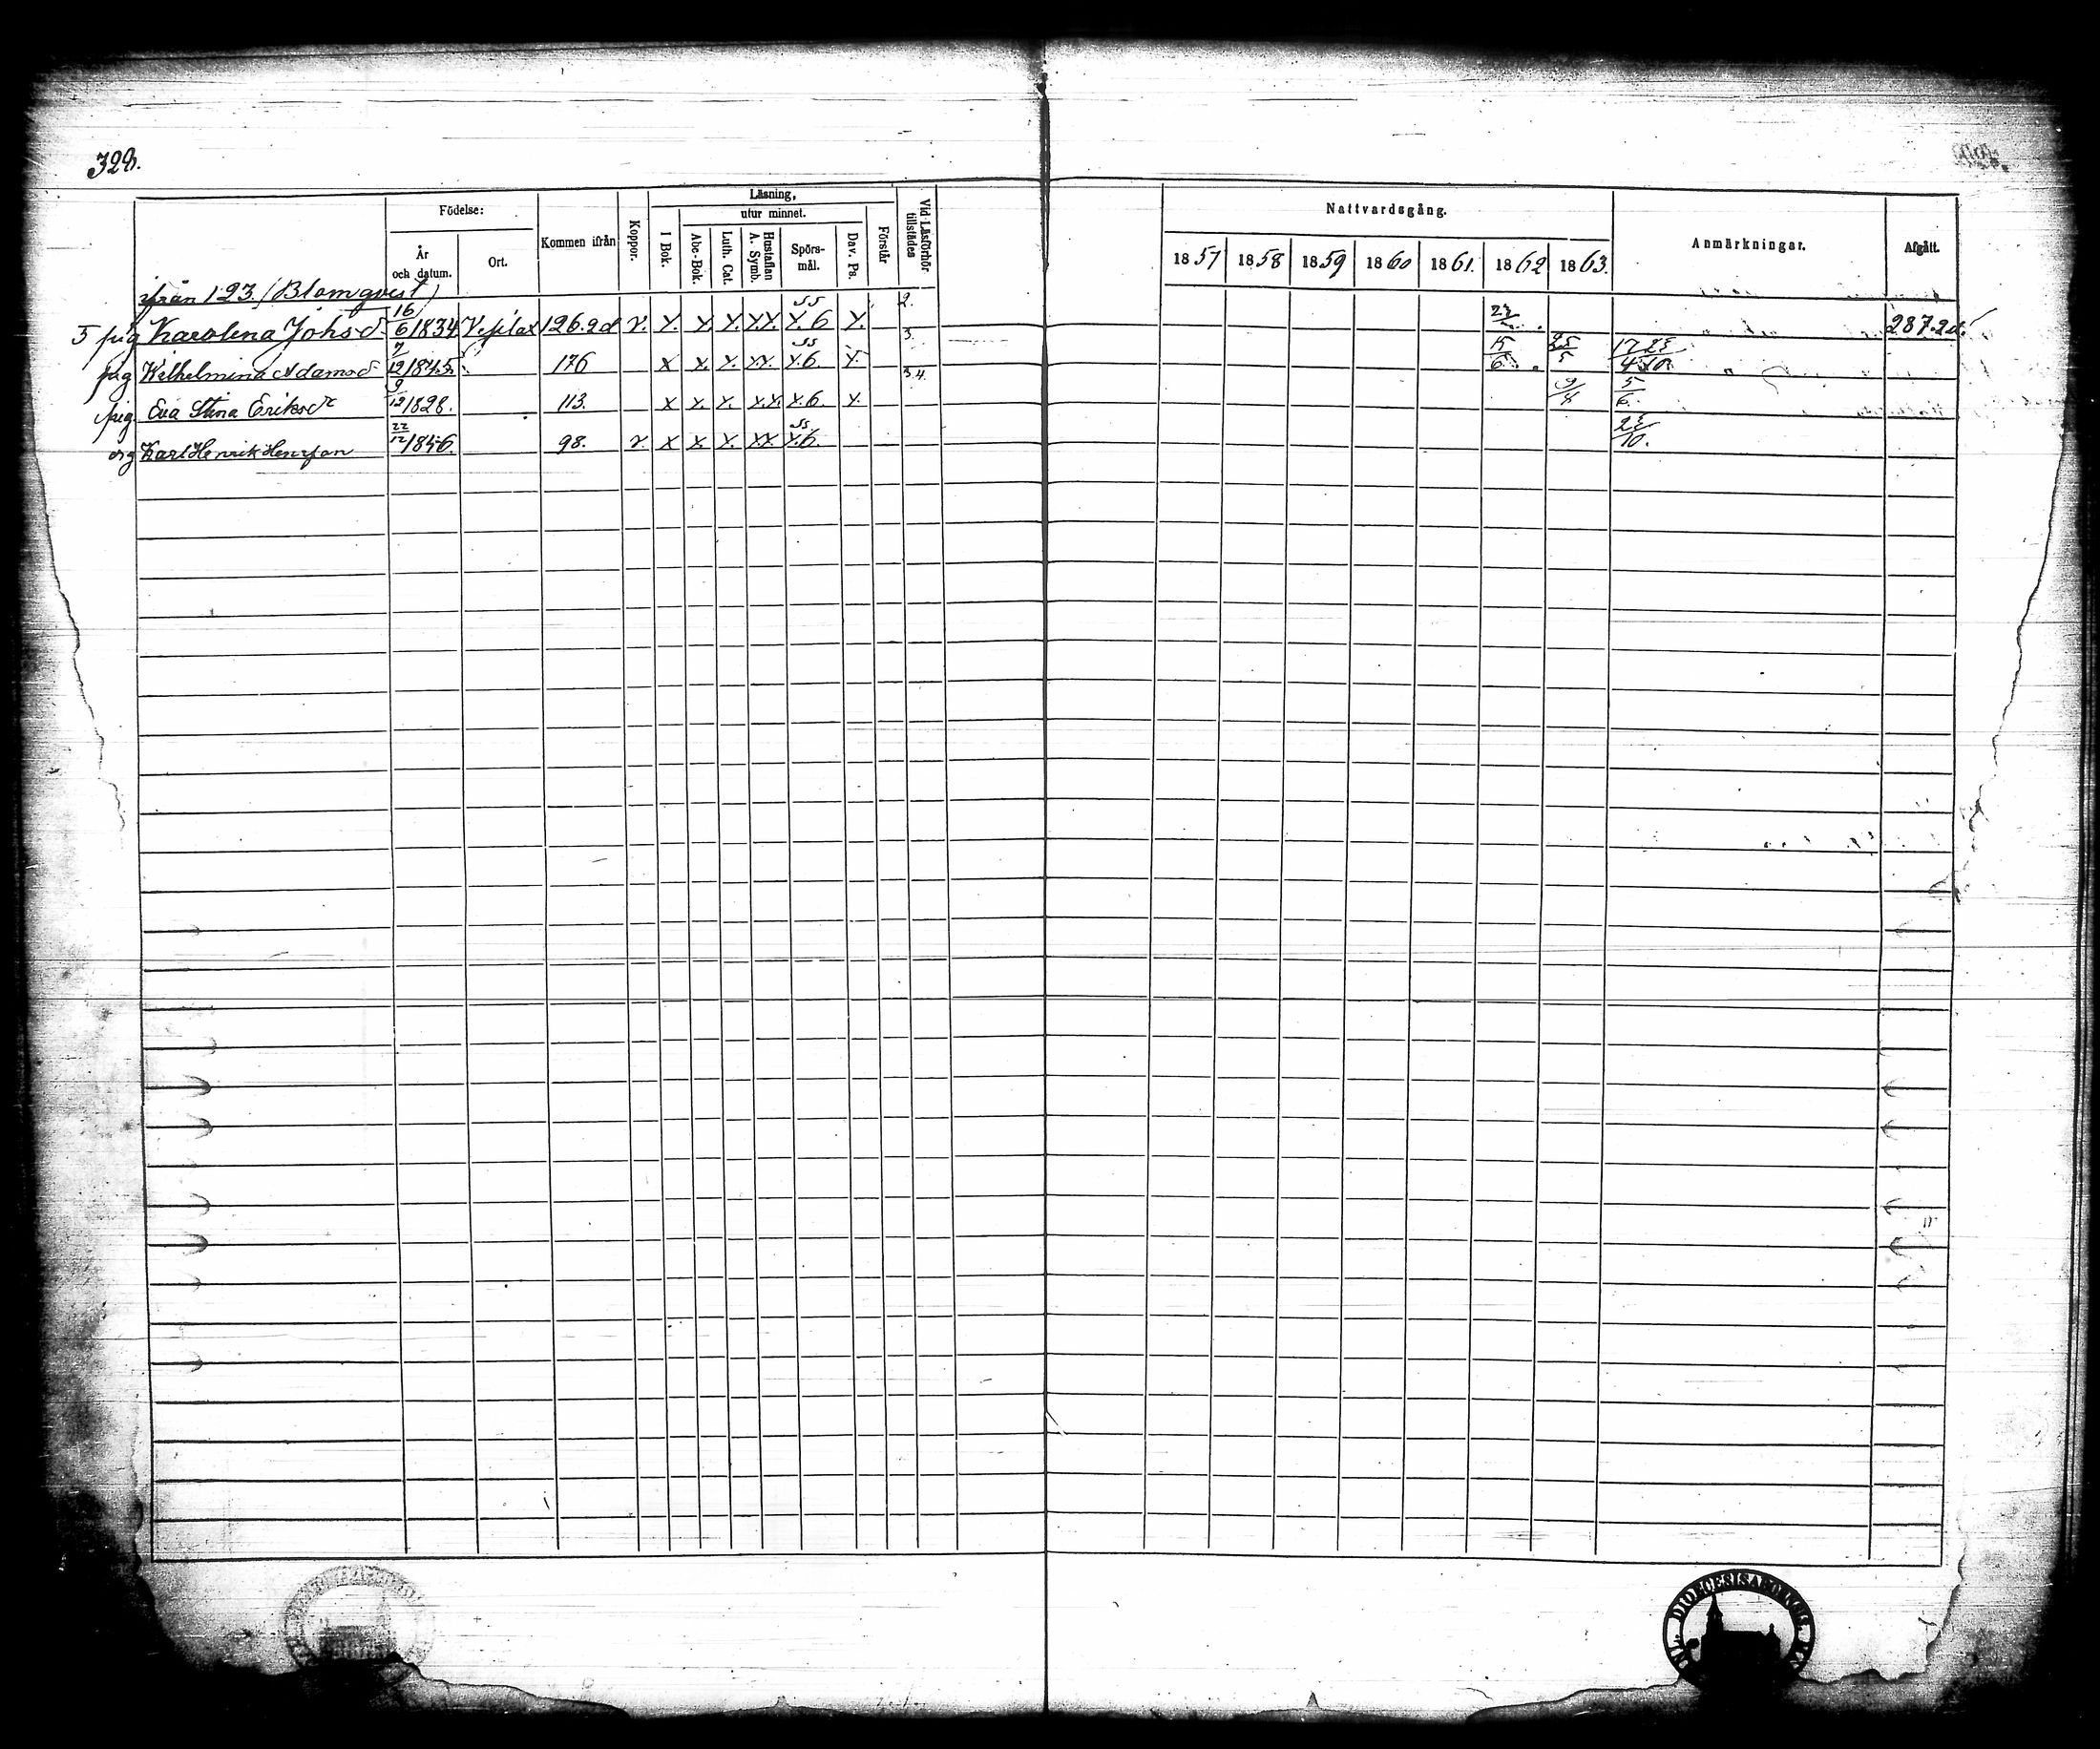 328.
Födelse:
Kommen ifrån
Koppor.
Läsning,
utur minnet.
År och datum.
Ort.
I Bok.
Abc-Bok.
Luth. Cat.
Hustaflan A. Symb.
Spörs-mål.
Dav. Ps.
Förstår
Vid Läsförhör tillstädes
Nattvardsgång.
1857 1858 1859 1860 1861. 1862 1863.
Anmärkningar.
Afgått.
ifrån 123. (Blomqvist)
3 pig Karolina Johsd. 16/6 1834 126.2d v. Y. Y. Y. Y.Y. Y. 6 Y. 2. 287.2d.
pig Wilhelmina Adamsd 7/12 1845. 176 x x. Y. x.x. x.6. Y. 3. 15/6. 25/5
pig. Eva Stina Eriksdr 9/12 1828. 113. x x. x. x.x. x.6. x. 3.4. 9/4 5/6.
drg Karl Henrik Henrson 22/12 1846. 98. v. x x. Y. x.x. x.6. 25/10.
DIOECESIS ABOENSIS